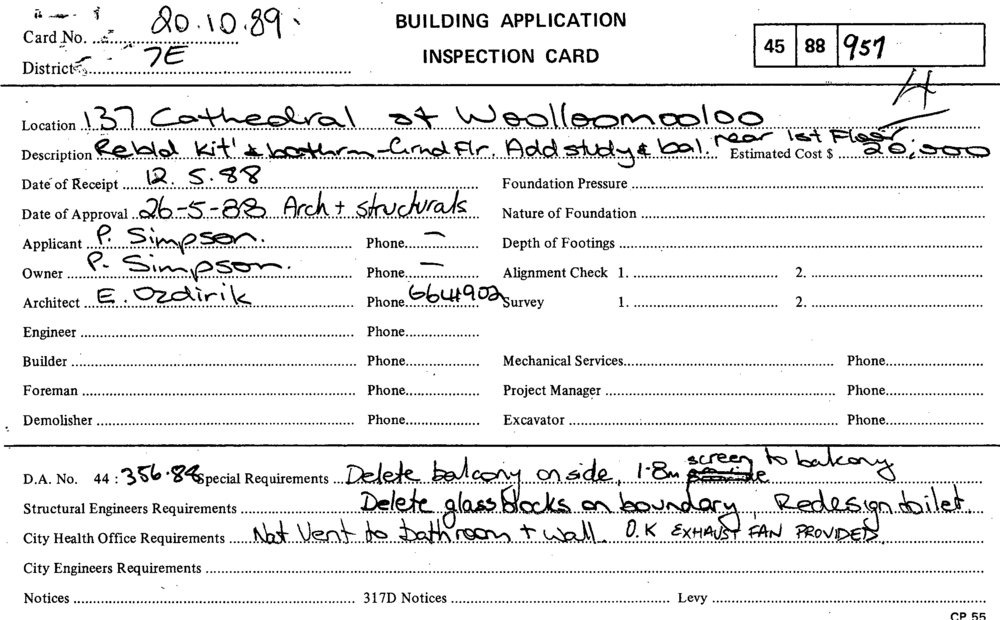 20.10.89.
BUILDING APPLICATION
INSPECTION CARD
Card No.
District 7E
45 88 957
4
Location 137 Cathedral st Woolloomooloo
Description Rebld Kit' & bathrm - Grnd Flr. Add study & bal. near 1st Floor Estimated Cost $ 20,000
Date of Receipt 12.5.88 Foundation Pressure
Date of Approval 26-5-88 Arch + structurals Nature of Foundation
Applicant P. Simpson. Phone — Depth of Footings
Owner P. Simpson. Phone — Alignment Check 1. 2.
Architect E. Ozdirik Phone 6641902 Survey 1. 2.
Engineer Phone
Builder Phone Mechanical Services Phone
Foreman Phone Project Manager Phone
Demolisher Phone Excavator Phone
D.A. No. 44 : 356.88 Special Requirements Delete balcony on side, 1.8m screen to balcony
Structural Engineers Requirements Delete glass blocks on boundary, Redesign toilet.
City Health Office Requirements Nat Vent to bathroom + wall. O.K EXHAUST FAN PROVIDED
City Engineers Requirements
Notices 317D Notices Levy
CP 55